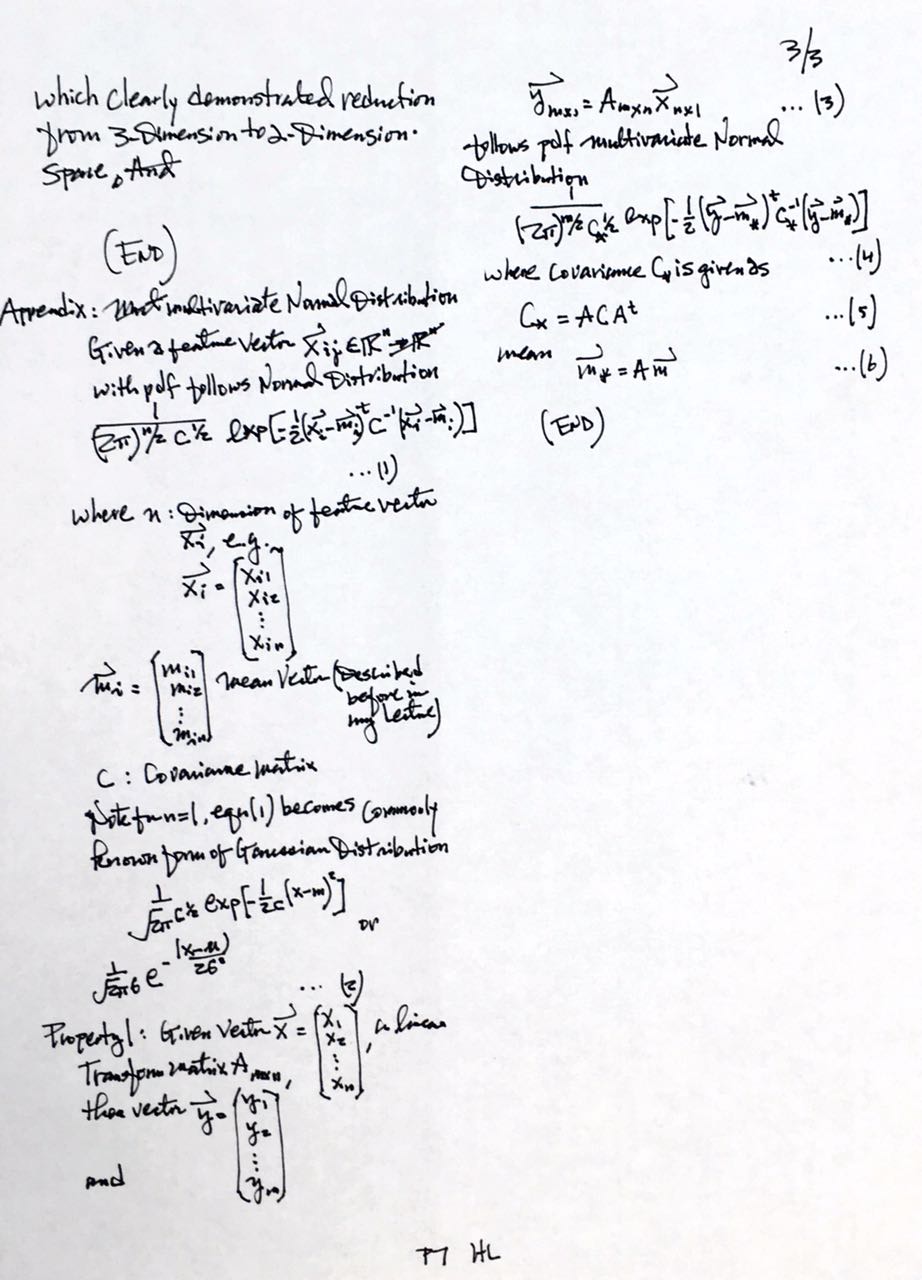 3/3
which clearly demonstrated reduction
from 3-Dimension to 2-Dimension.
Space, And
(END)
Appendix: multivariate Normal Distribution
Given a feature vector x⃗ij ∈ ℝⁿ
with pdf follows Normal Distribution
1/((2π)^{n/2} C^{1/2}) exp[-½(x⃗i-m⃗i)^t C⁻¹(x⃗i-m⃗i)]
...(1)
where n: Dimension of feature vector
x⃗i, e.g.,
x⃗i = [xi1 xi2 ⋮ xin]
m⃗i = [mi1 mi2 ⋮ min] mean Vector (Described
before in
my lecture)
C: Covariance matrix
Note for n=1, eqn(1) becomes commonly
known form of Gaussian Distribution
1/(√2π C^{1/2}) exp[-1/2c (x-m)²]
or
1/(√2π б) e^{-(x-u)/2б²}
... (2)
Property 1: Given Vector x⃗ = [x1 x2 ⋮ xn], a linear
Transform matrix A_{mxn},
then vector y⃗ = [y1 y2 ⋮ ym]
and
y⃗_{mx1} = A_{mxn} x⃗_{nx1} ...(3)
follows pdf multivariate Normal
Distribution
1/((2π)^{m/2} C_*^{1/2}) exp[-½(y⃗-m⃗_*)^t C_*⁻¹(y⃗-m⃗_*)]
...(4)
where Covariance C_* is given as
C_* = ACA^t ...(5)
mean m⃗_* = A m⃗ ...(6)
(END)
HL